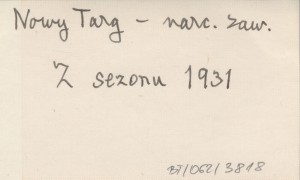 Nowy Targ - narc. zaw.
Z sezonu 1931
BT/062/3818